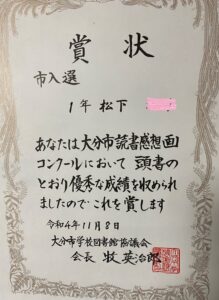 賞状
市入選
1年 松下
あなたは大分市読書感想画
コンクールにおいて頭書の
とおり優秀な成績を収められ
ましたのでこれを賞します
令和4年11月8日
大分市学校図書館協議会
会長 牧英治郎